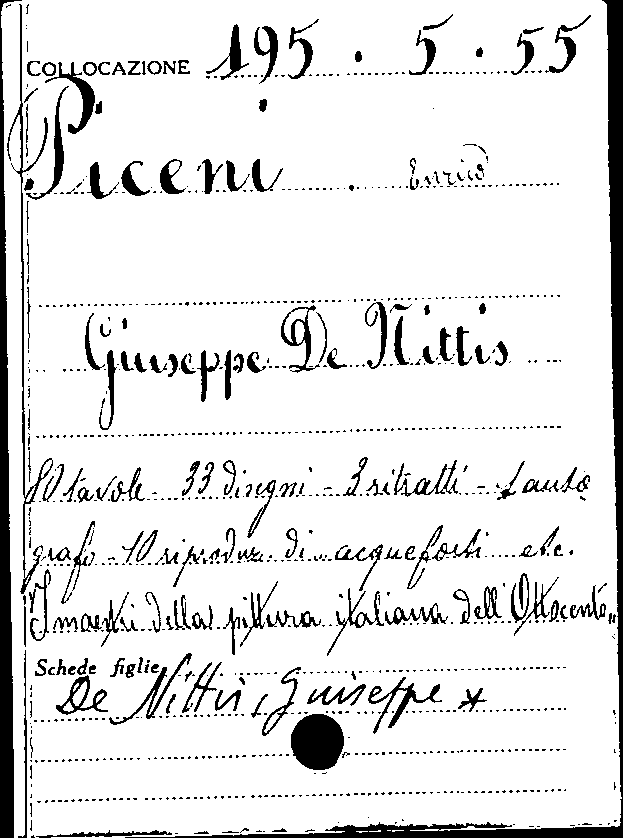 COLLOCAZIONE 195 . 5 . 55
Piceni . Enrico
Giuseppe De Nittis
80 tavole - 33 disegni - 3 ritratti - 1 auto
grafo - 10 riproduz. di acqueforti etc.
"I maestri della pittura italiana dell'Ottocento"
Schede figlie
De Nittis, Giuseppe *